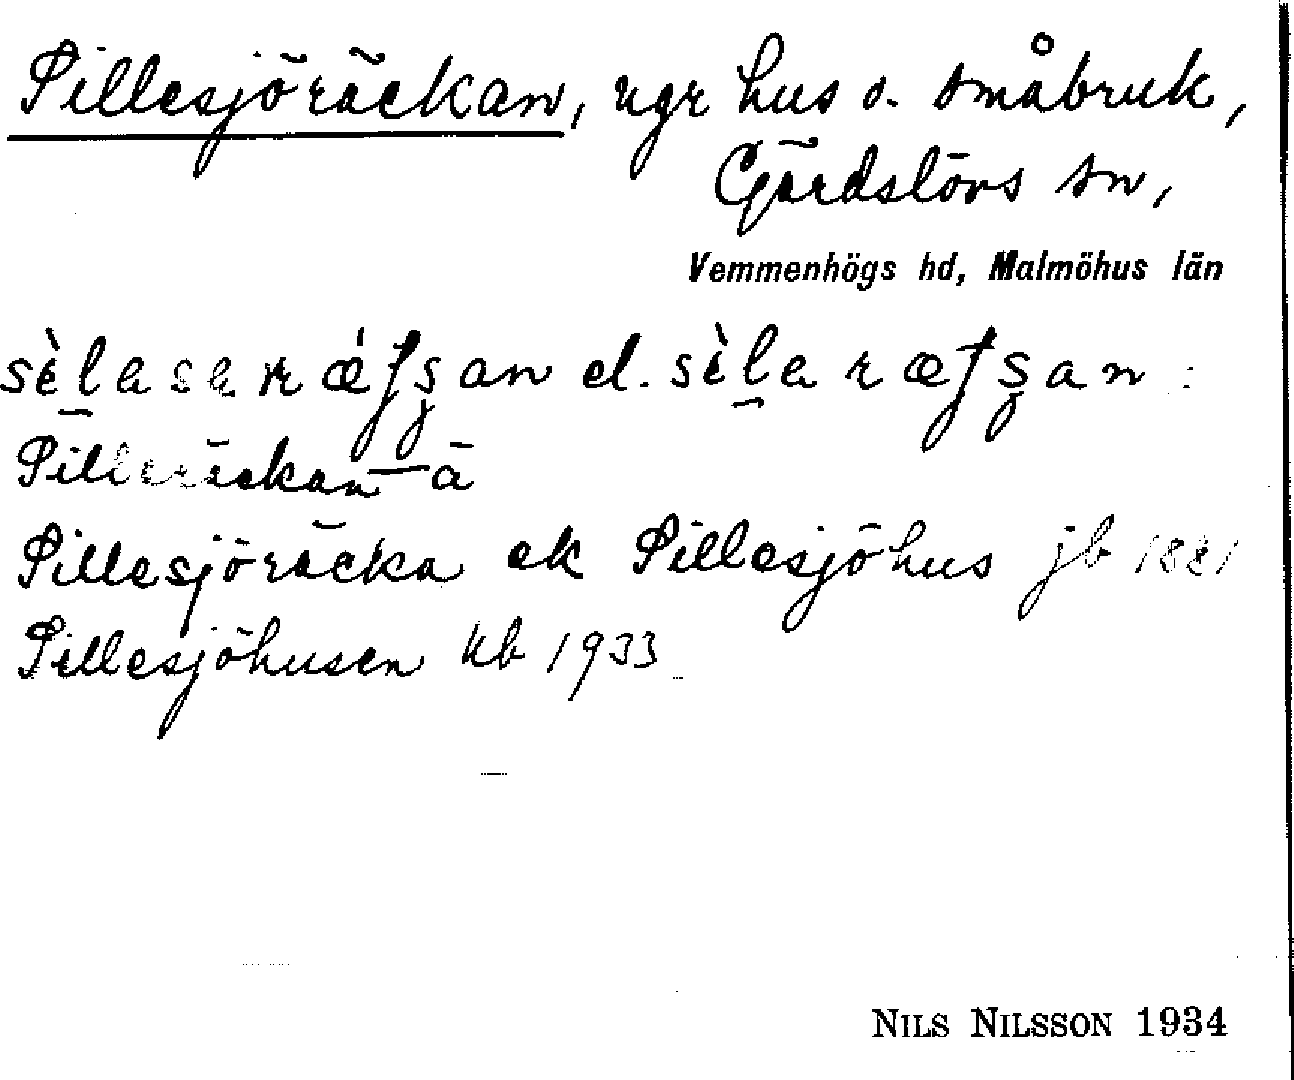 Sillesjöräckan, ngr hus o. småbruk,
Gärdslövs sn,
Vemmenhögs hd, Malmöhus län
el.
Silleräckan – ä
Sillesjöräcka ek Sillesjöhus jb 1881
Sillesjöhusen kb 1933
NILS NILSSON 1934